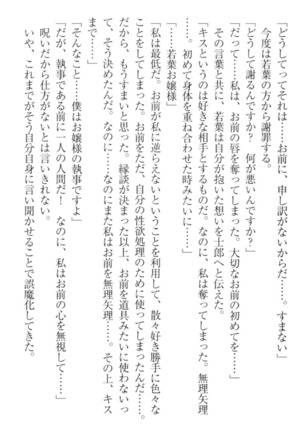 「どうしてってそれは……お前に、申し訳がないからだ……。すまない」
今度は若葉の方から謝罪する。
「どうして謝るんですか？　何が悪いんですか？」
「だって……私は、お前の唇を奪ってしまった。大切なお前の初めてを……」
その言葉と共に、若葉は自分が抱いた想いを士郎へと伝えた。
「キスというのは好きな相手とするものだ。なのに、私は奪ってしまった。無理矢理
に。初めて身体を重ね合わせた時みたいに……」
「……若葉お嬢様」
「私は最低だ。お前が私に逆らえないということを利用して、散々好き勝手に色々な
ことをしてしまった。お前をただ、自分の性欲処理のために使ってしまったんだ……。
だから、もうすまいと思った。縁談が決まった以上、お前を道具みたいに使わないっ
て、そう決めたんだ。なのに……なのにまた私はお前を無理矢理……。その上、キス
まで……」
「そんなこと……僕はお嬢様の執事ですよ」
「だが、執事である前に一人の人間だ！　なのに、私はお前の心を無視して……」
呪いだから仕方がないとは言いきれない。
いや、これまでがそう自分自身に言い聞かせることで誤魔化してきた。